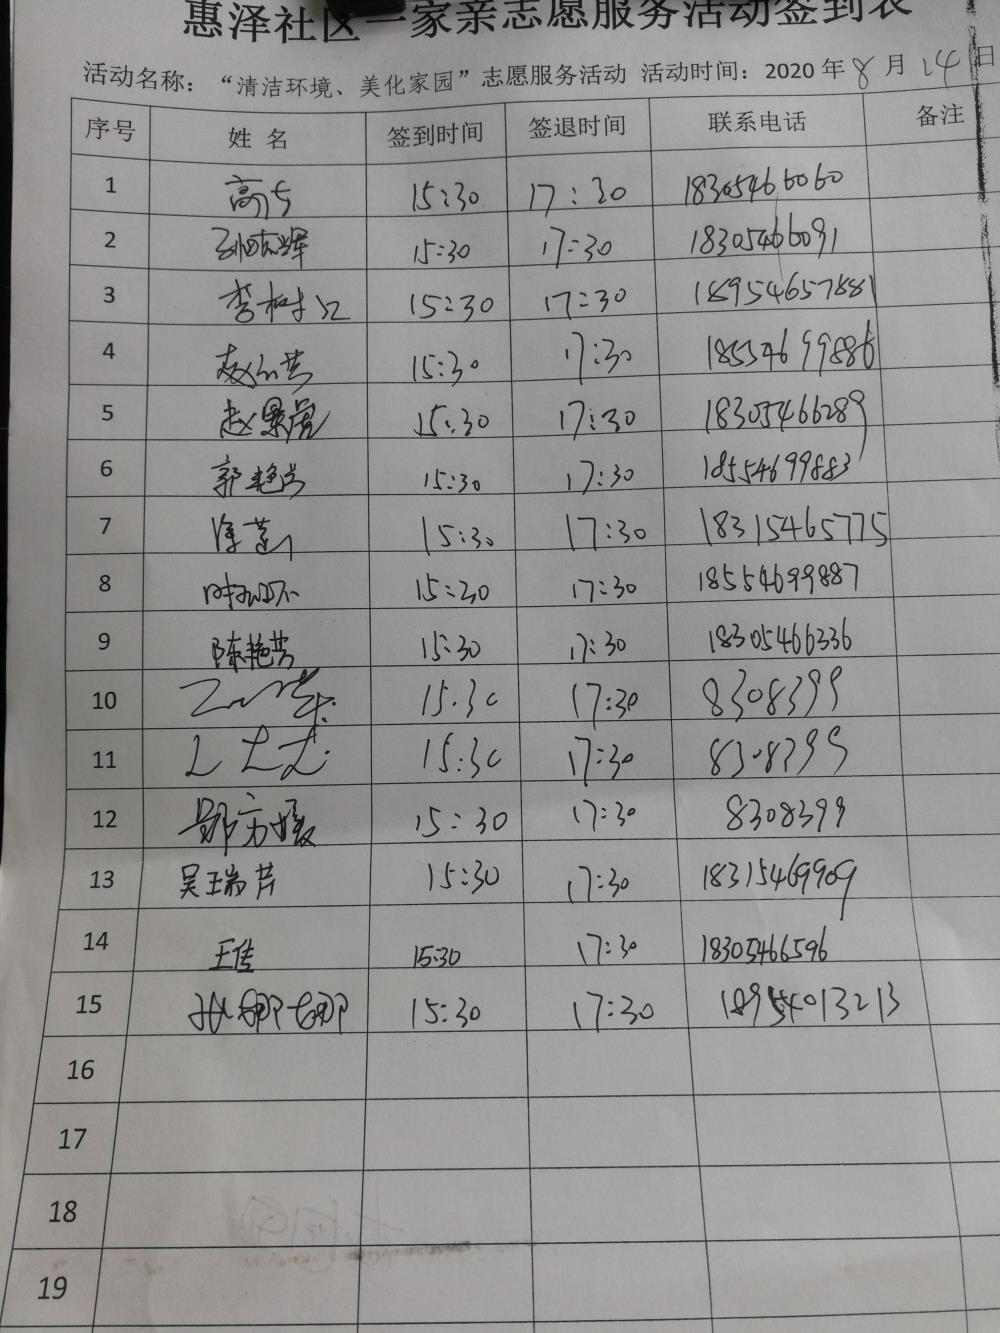 惠泽社区一家亲志愿服务活动签到表
活动名称：“清洁环境、美化家园”志愿服务活动 活动时间：2020 年 8 月 14 日
序号 姓 名 签到时间 签退时间 联系电话 备注
1 15:30 17:30 18305466060
2 15:30 17:30 18305466091
3 15:30 17:30 18954657881
4 15:30 17:30 18554699886
5 赵景虎 15:30 17:30 18305466289
6 郭艳芳 15:30 17:30 18554699883
7 15:30 17:30 18315465775
8 15:30 17:30 18554699887
9 陈艳芳 15:30 17:30 18305466336
10 15.30 17:30 8308399
11 15:30 17:30 8308399
12 15:30 17:30 8308399
13 吴瑞芹 15:30 17:30 18315469909
14 王佳 15:30 17:30 18305466596
15 15:30 17:30 18954013213
16
17
18
19